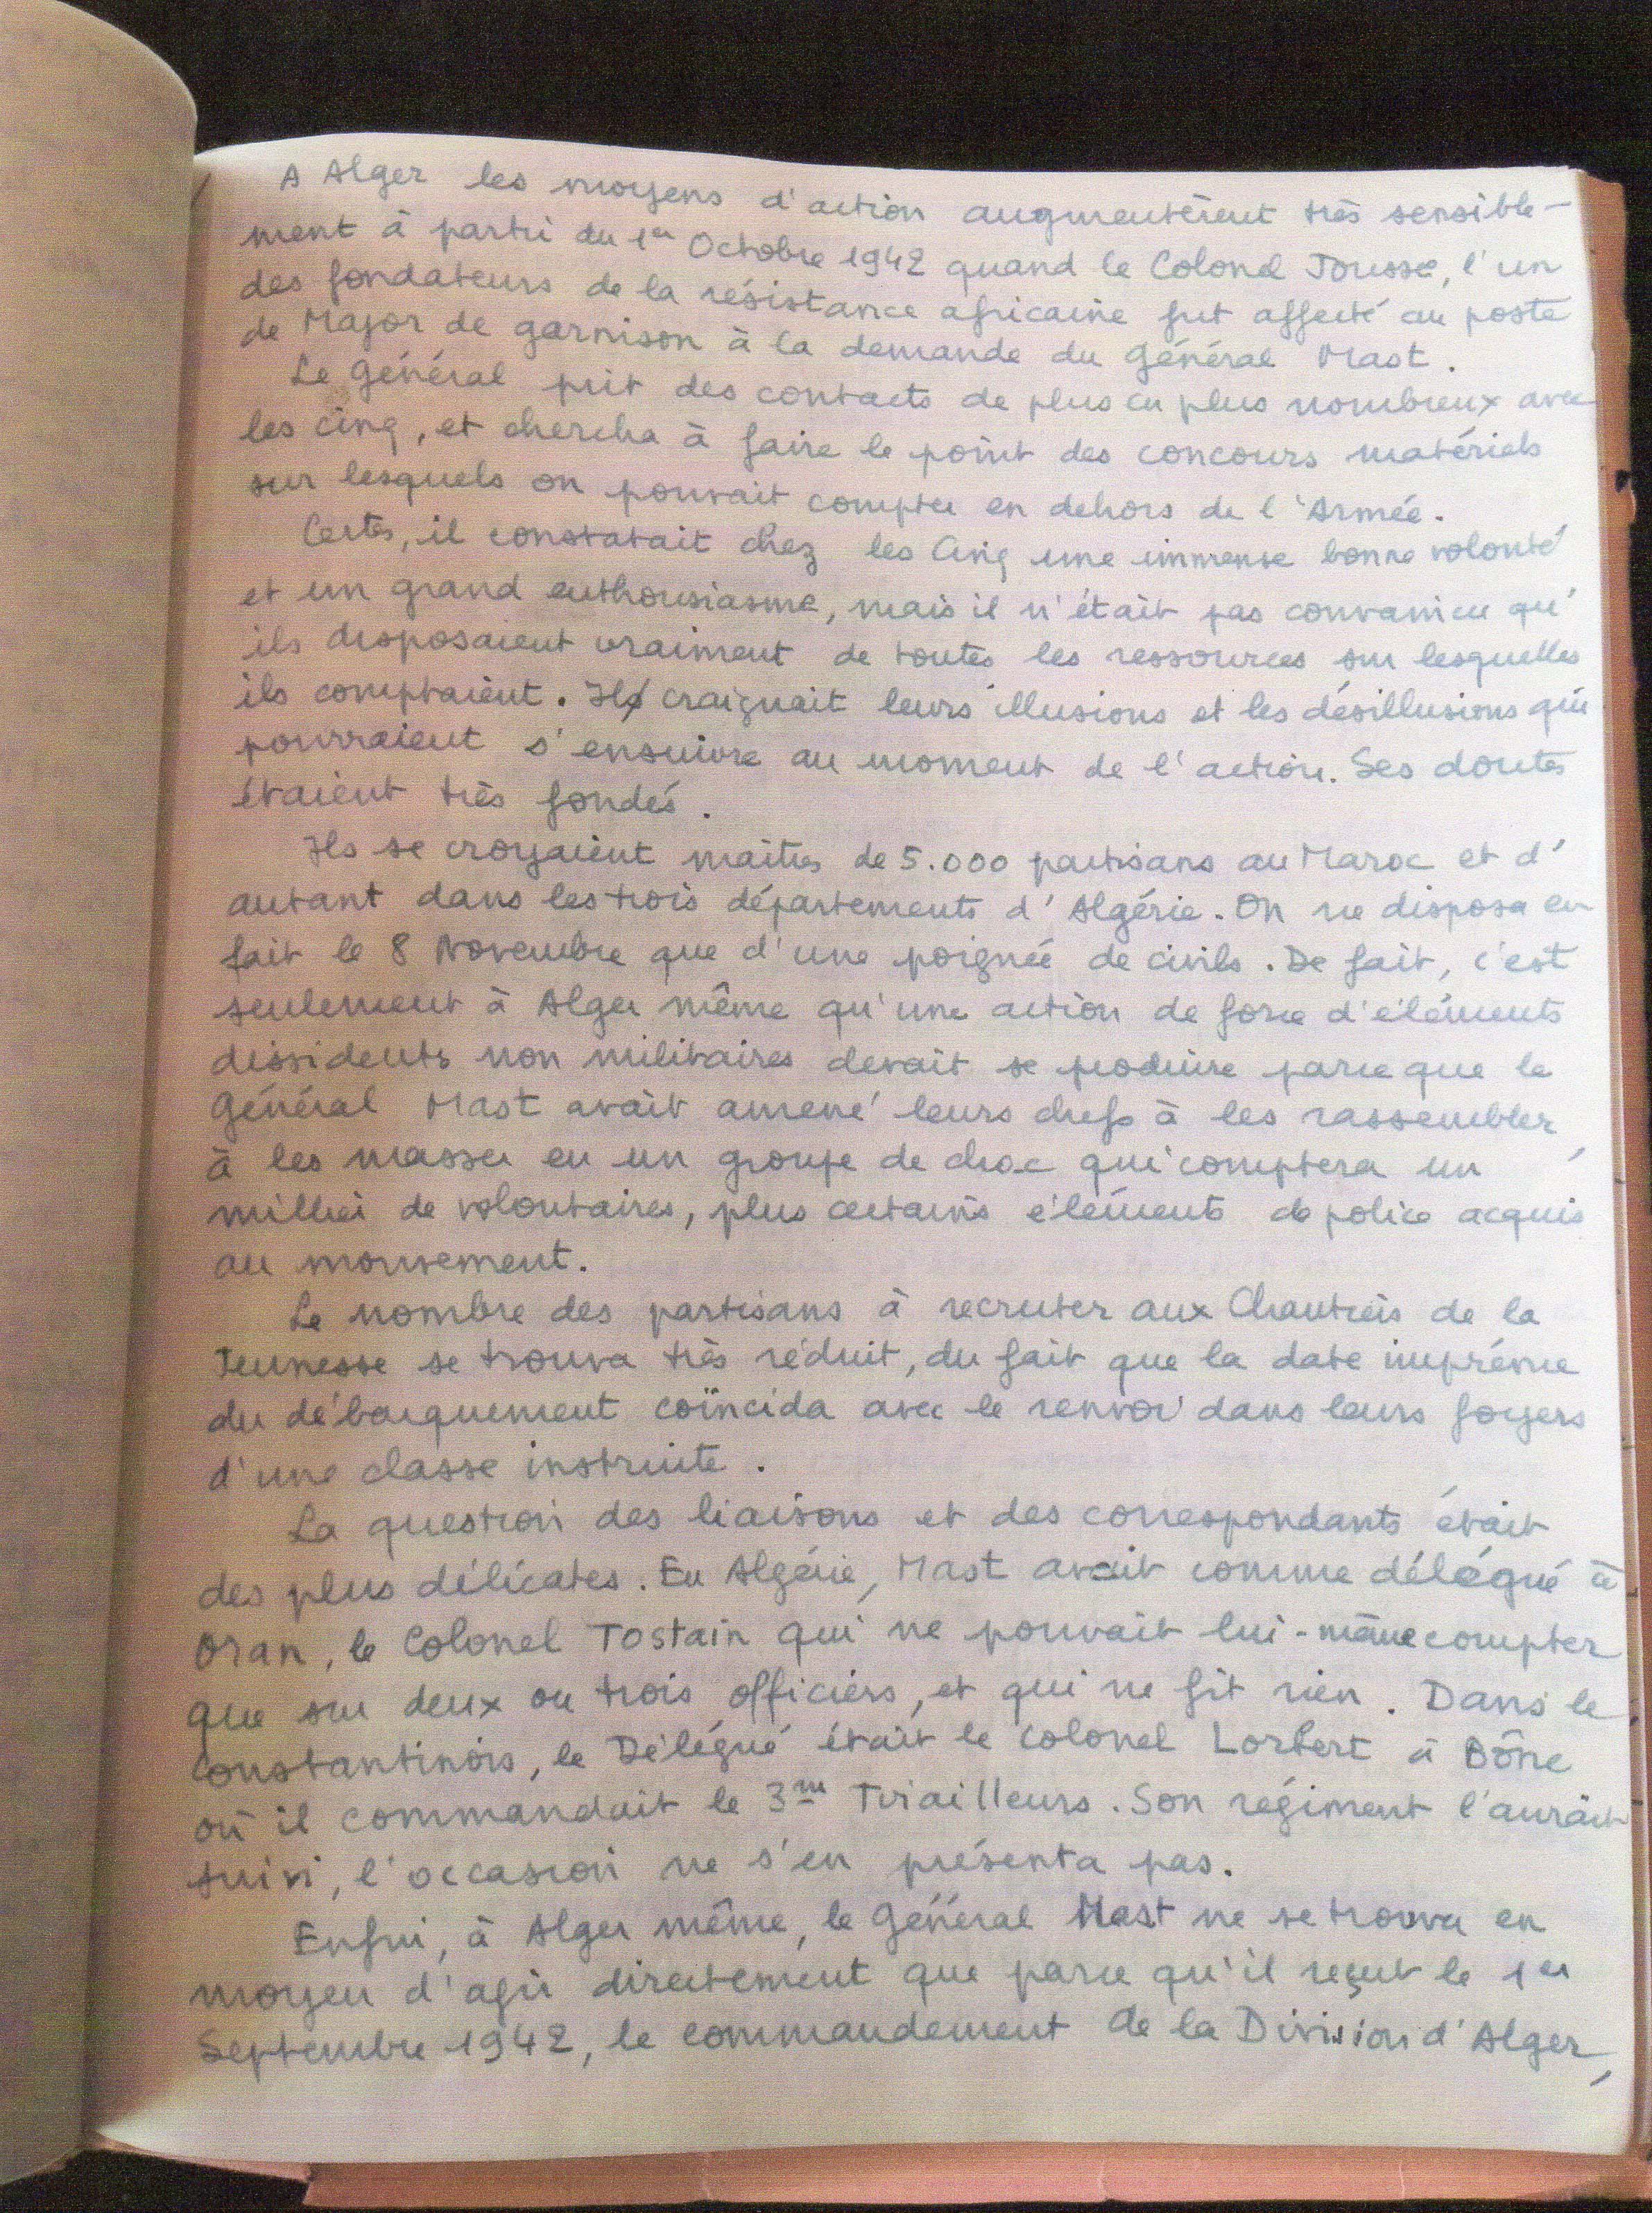 A Alger les moyens d'action augmentèrent très sensible-
ment à partir du 1er Octobre 1942 quand le Colonel Jousse, l'un
des fondateurs de la résistance africaine fut affecté au poste
de Major de garnison à la demande du Général Mast.
Le Général prit des contacts de plus en plus nombreux avec
les cinq, et chercha à faire le point des concours matériels
sur lesquels on pouvait compter en dehors de l'Armée.
Certes, il constatait chez les Cinq une immense bonne volonté
et un grand enthousiasme, mais il n'était pas convaincu qu'
ils disposaient vraiment de toutes les ressources sur lesquelles
ils comptaient. Il craignait leurs illusions et les désillusions qui
pourraient s'ensuivre au moment de l'action. Ses doutes
étaient très fondés.
Ils se croyaient maîtres de 5.000 partisans au Maroc et d'
autant dans les trois départements d'Algérie. On ne disposa en
fait le 8 Novembre que d'une poignée de civils. De fait, c'est
seulement à Alger même qu'une action de force d'éléments
dissidents non militaires devait se produire parce que le
Général Mast avait amené leurs chefs à les rassembler,
à les masser en un groupe de choc qui comptera un
millier de volontaires, plus certains éléments de police acquis
au mouvement.
Le nombre des partisans à recruter aux Chantiers de la
Jeunesse se trouva très réduit, du fait que la date imprévue
du débarquement coïncida avec le renvoi dans leurs foyers
d'une classe instruite.
La question des liaisons et des correspondants était
des plus délicates. En Algérie, Mast avait comme délégué à
Oran, le Colonel Tostain qui ne pouvait lui-même compter
que sur deux ou trois officiers, et qui ne fit rien. Dans le
Constantinois, le Délégué était le Colonel Lorbert à Bône
où il commandait le 3me Tirailleurs. Son régiment l'aurait
suivi, l'occasion ne s'en présenta pas.
Enfin, à Alger même, le Général Mast ne se trouva en
moyen d'agir directement que parce qu'il reçut le 1er
Septembre 1942, le commandement de la Division d'Alger,